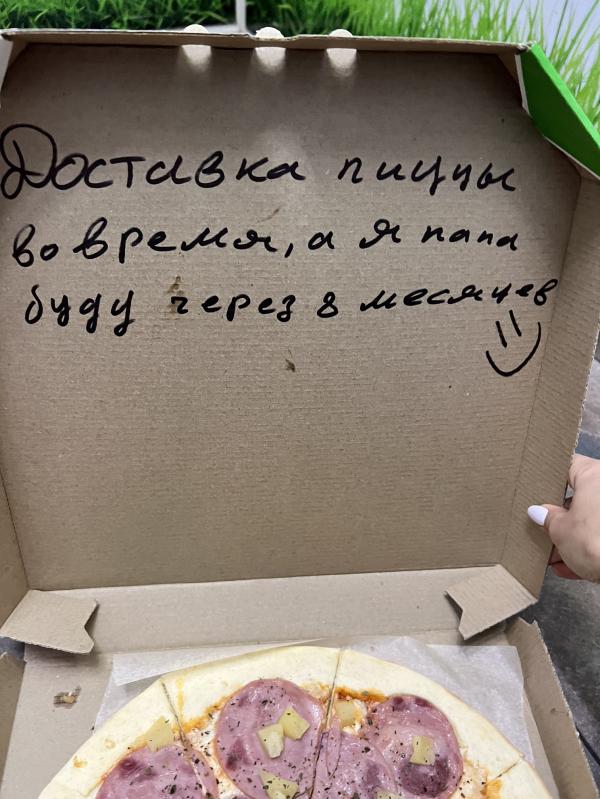 Доставка пиццы
во время, а я папа
буду через 8 месяцев